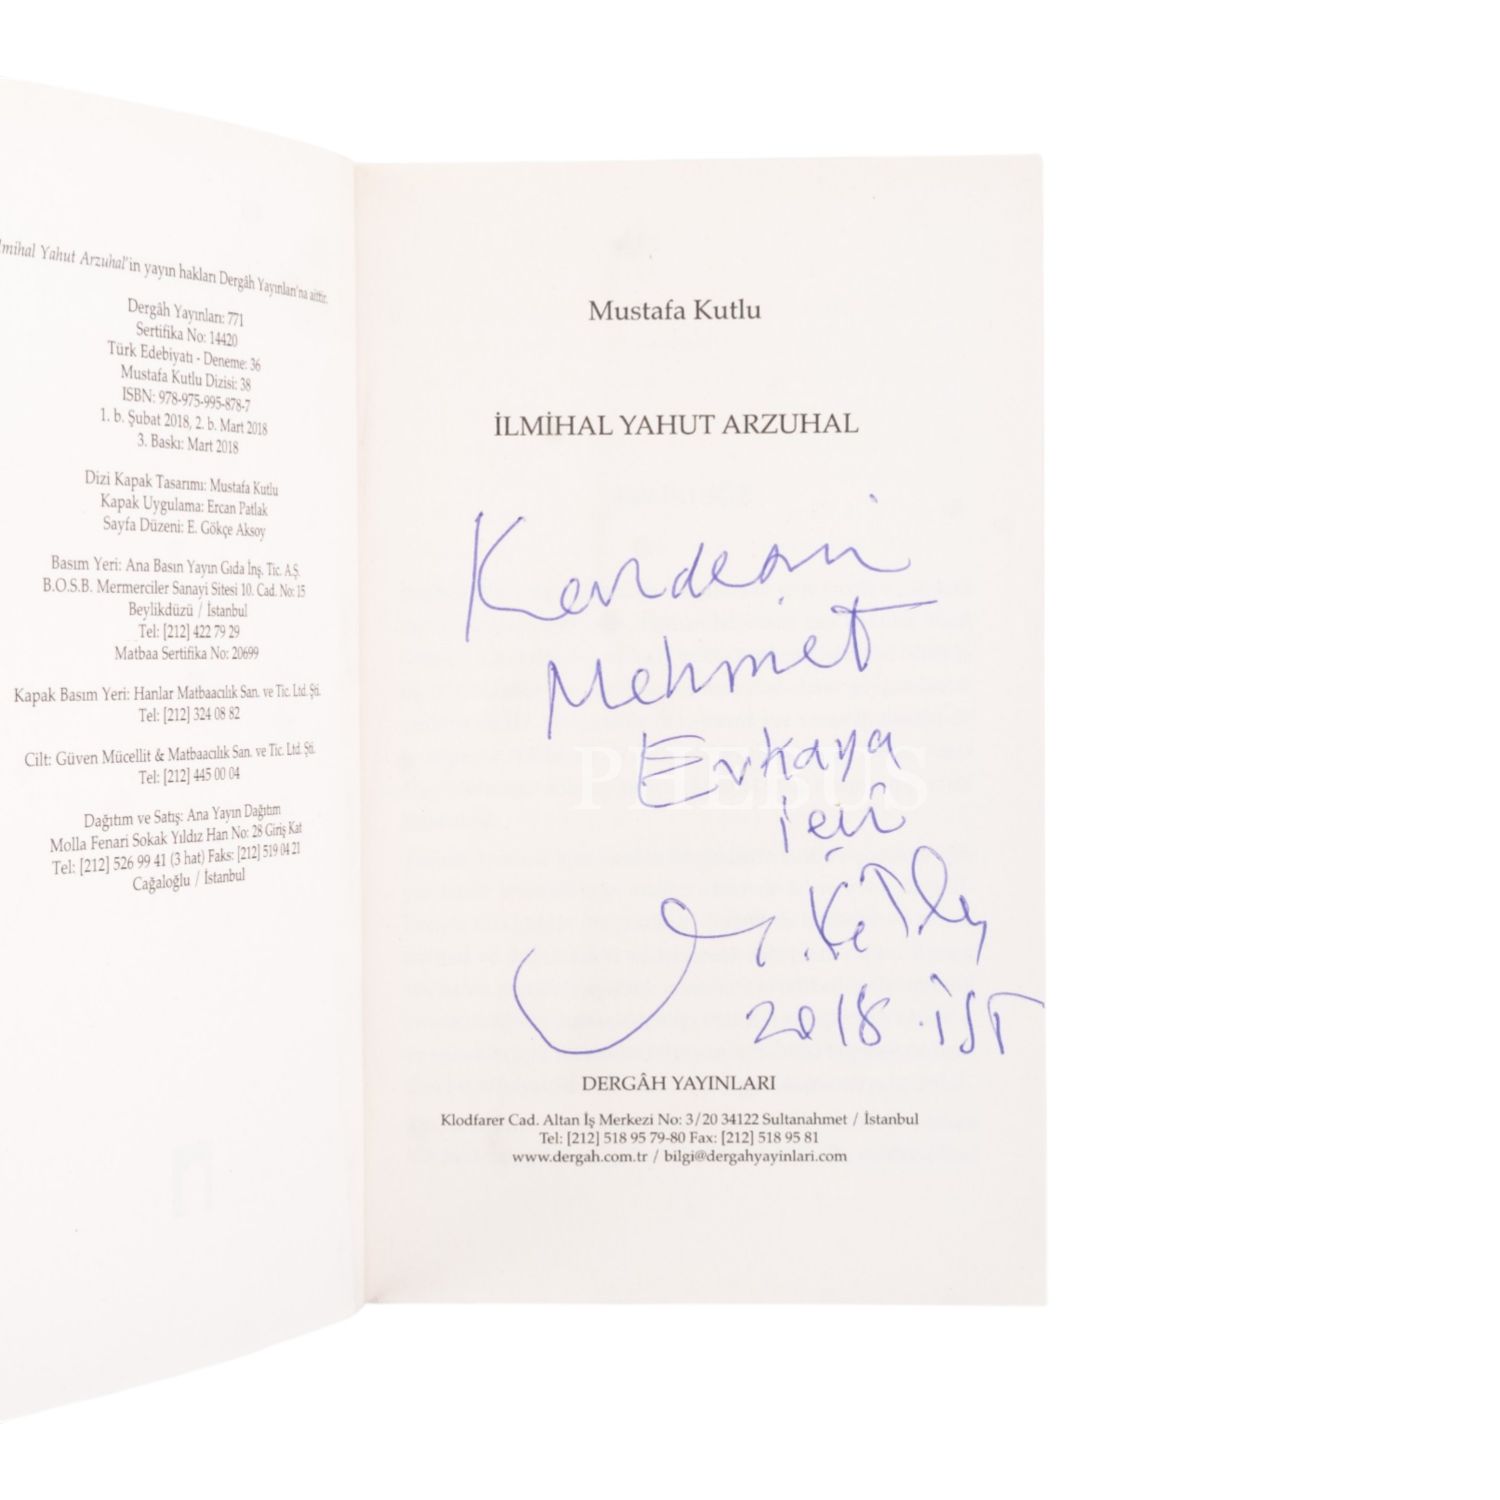 İlmihal Yahut Arzuhal'in yayın hakları Dergâh Yayınları'na aittir.
Dergâh Yayınları: 771
Sertifika No: 14420
Türk Edebiyatı - Deneme: 36
Mustafa Kutlu Dizisi: 38
ISBN: 978-975-995-878-7
1. b. Şubat 2018, 2. b. Mart 2018
3. Baskı: Mart 2018
Dizi Kapak Tasarımı: Mustafa Kutlu
Kapak Uygulama: Ercan Patlak
Sayfa Düzeni: E. Gökçe Aksoy
Basım Yeri: Ana Basın Yayın Gıda İnş. Tic. A.Ş.
B.O.S.B. Mermerciler Sanayi Sitesi 10. Cad. No: 15
Beylikdüzü / İstanbul
Tel: [212] 422 79 29
Matbaa Sertifika No: 20699
Kapak Basım Yeri: Hanlar Matbaacılık San. ve Tic. Ltd. Şti.
Tel: [212] 324 08 82
Cilt: Güven Mücellit & Matbaacılık San. ve Tic. Ltd. Şti.
Tel: [212] 445 00 04
Dağıtım ve Satış: Ana Yayın Dağıtım
Molla Fenari Sokak Yıldız Han No: 28 Giriş Kat
Tel: [212] 526 99 41 (3 hat) Faks: [212] 519 04 21
Cağaloğlu / İstanbul
Mustafa Kutlu
İLMİHAL YAHUT ARZUHAL
Mehmet
PHEBUS
için
M. Kutlu
2018 . İST
DERGÂH YAYINLARI
Klodfarer Cad. Altan İş Merkezi No: 3/20 34122 Sultanahmet / İstanbul
Tel: [212] 518 95 79-80 Fax: [212] 518 95 81
www.dergah.com.tr / bilgi@dergahyayinlari.com